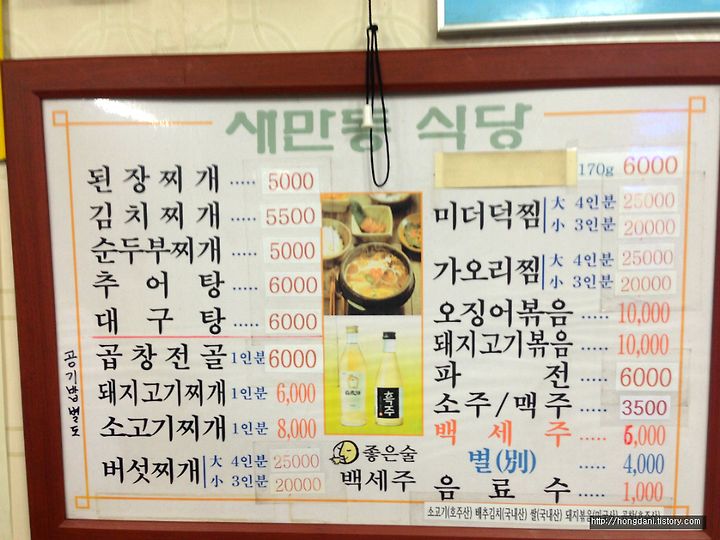 새만동 식당
된장찌개 ..... 5000
김치찌개 ..... 5500
순두부찌개 ..... 5000
추어탕 ..... 6000
대구탕 ..... 6000
곱창전골 1인분 6000
돼지고기찌개 1인분 6,000
소고기찌개 1인분 8,000
버섯찌개 大 4인분 25000
小 3인분 20000
공기밥별도
흑주
좋은술
백세주
170g 6000
미더덕찜 大 4인분 25000
小 3인분 20000
가오리찜 大 4인분 25000
小 3인분 20000
오징어볶음 ..... 10,000
돼지고기볶음 ..... 10,000
파전 6000
소주/맥주 ..... 3500
백세주 ..... 6,000
별(別) ..... 4,000
음료수 ..... 1,000
소고기(호주산) 배추김치(국내산) 쌀(국내산)
http://hongdani.tistory.com